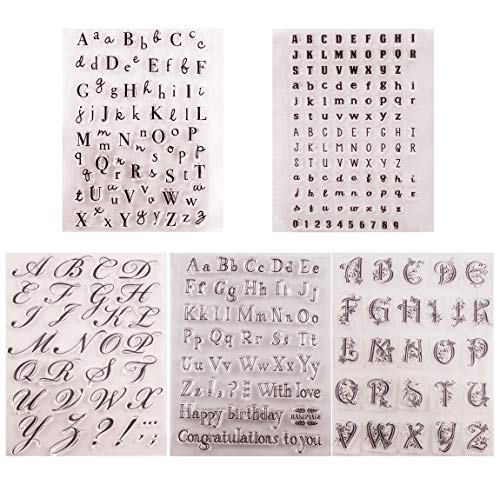 A a B b C c
d D e E f F
G g H h I
i j J k K l L
M m n N o O P
p Q q R r s S
t T U u v V
u w W x
X x Y y Z z z
A B C D E F G H I
J K L M N O P Q R
S T U V W X Y Z
a b c d e f g h i
j k l m n o p q r
s t u v w x y z
A B C D E F G H I
J K L M N O P Q R
S T U V W X Y Z
a b c d e f g h i
j k l m n o p q r
s t u v w x y z
0 1 2 3 4 5 6 7 8 9
A B C D
E F G H
I J K L
M N O P
Q R S T
U V W X
Y Z ? ! . , ;
Aa Bb Cc Dd Ee
Ff Gg Hh Ii Jj
Kk Ll Mm Nn Oo
Pp Qq Rr Ss Tt
Uu Vv Ww Xx Yy
Zz ! , ? With love
Happy birthday HANDMADE
Congratulations to you
A B C D E
F G H I K
L M N O P
Q R S T U
V W X Y Z